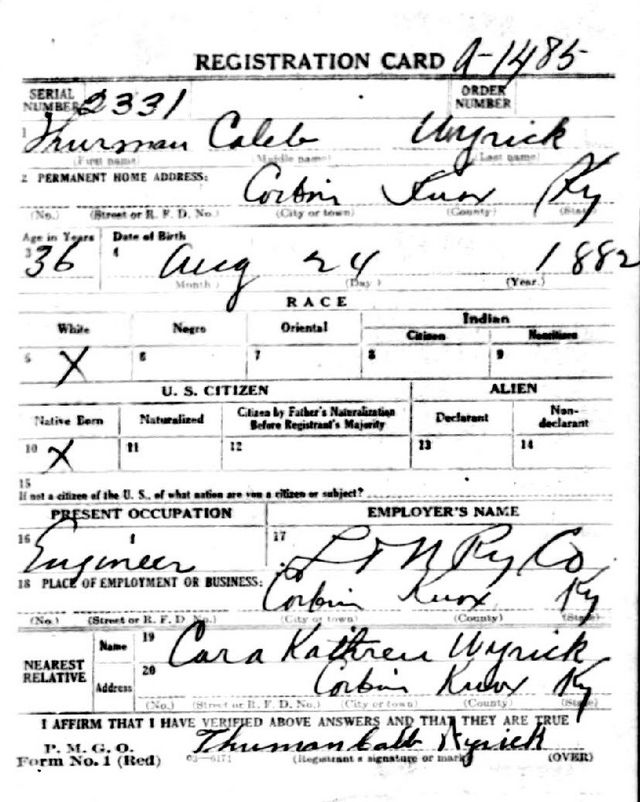 REGISTRATION CARD A-1485
SERIAL NUMBER 2331 ORDER NUMBER
1 Thurman Caleb Wyrick
(First name) (Middle name) (Last name)
2 PERMANENT HOME ADDRESS:
Corbin Knox Ky
(No.) (Street or R. F. D. No.) (City or town) (County) (State)
Age in Years Date of Birth
3 36 4 Aug 24 1882
(Month) (Day) (Year.)
RACE
White Negro Oriental Indian
Citizen Noncitizen
5 X 6 7 8 9
U. S. CITIZEN ALIEN
Native Born Naturalized Citizen by Father's Naturalization Before Registrant's Majority Declarant Non-declarant
10 X 11 12 13 14
15
If not a citizen of the U. S., of what nation are you a citizen or subject?
PRESENT OCCUPATION EMPLOYER'S NAME
16 Engineer 17 L & N Ry Co
18 PLACE OF EMPLOYMENT OR BUSINESS:
Corbin Knox Ky
(No.) (Street or R. F. D. No.) (City or town) (County) (State)
NEAREST RELATIVE
Name 19 Cara Kathren Wyrick
Address 20 Corbin Knox Ky
(No.) (Street or R. F. D. No.) (City or town) (County) (State)
I AFFIRM THAT I HAVE VERIFIED ABOVE ANSWERS AND THAT THEY ARE TRUE
P. M. G. O.
Form No. 1 (Red) 03—6171 Thurman Caleb Wyrick
(Registrant's signature or mark) (OVER)